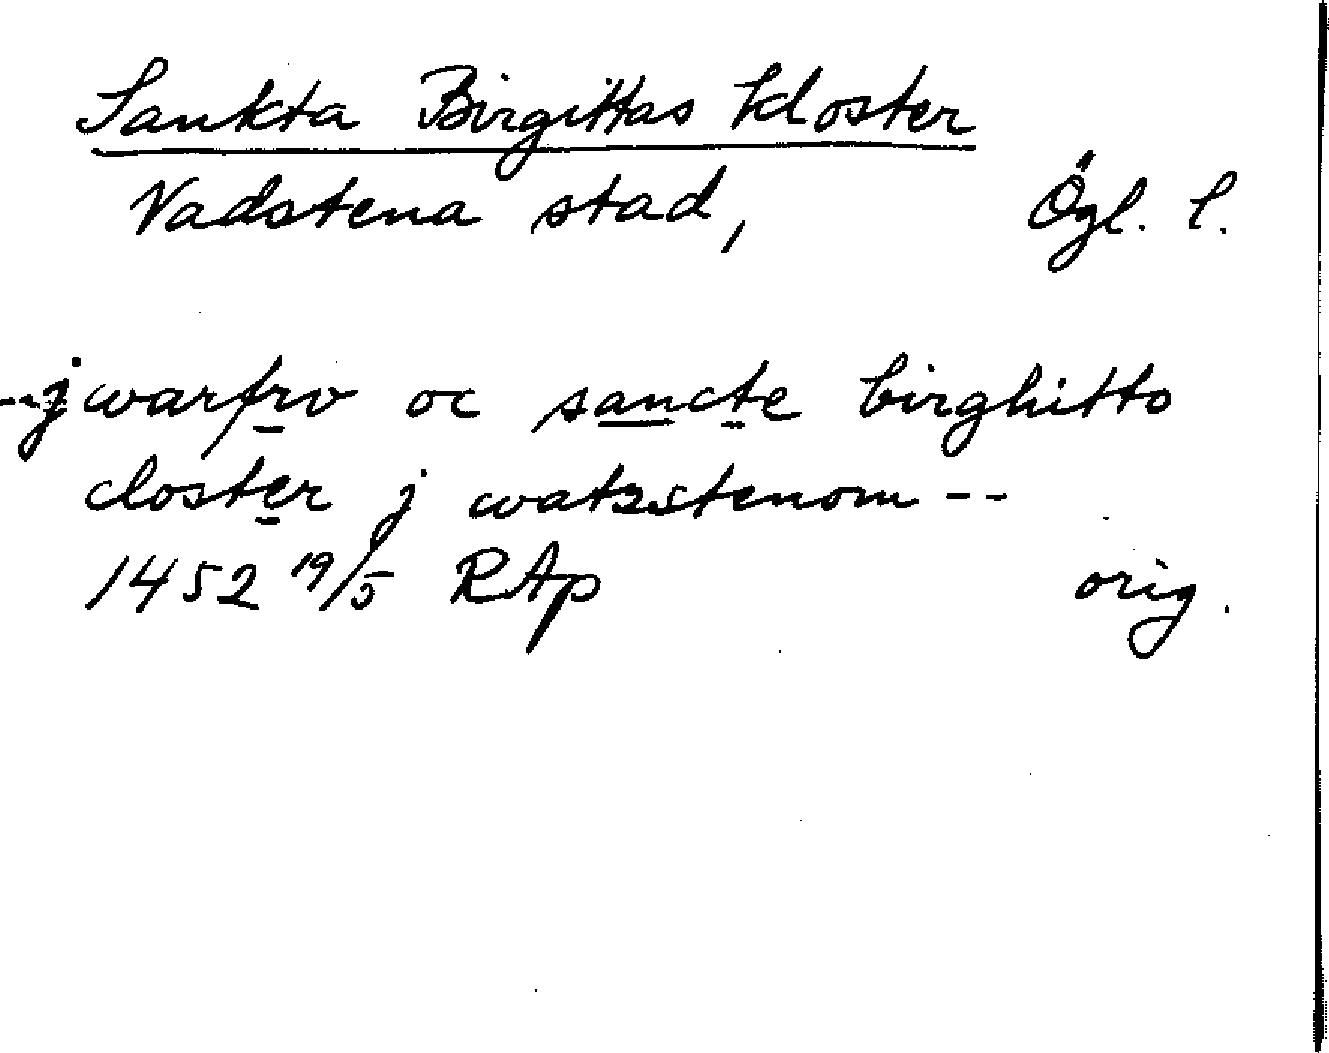 Sankta Birgittas kloster
Vadstena stad, Ögl. l.
--j warfrv oc sancte birghitto
closter j watzstenom --
1452 19/5 RAp orig.